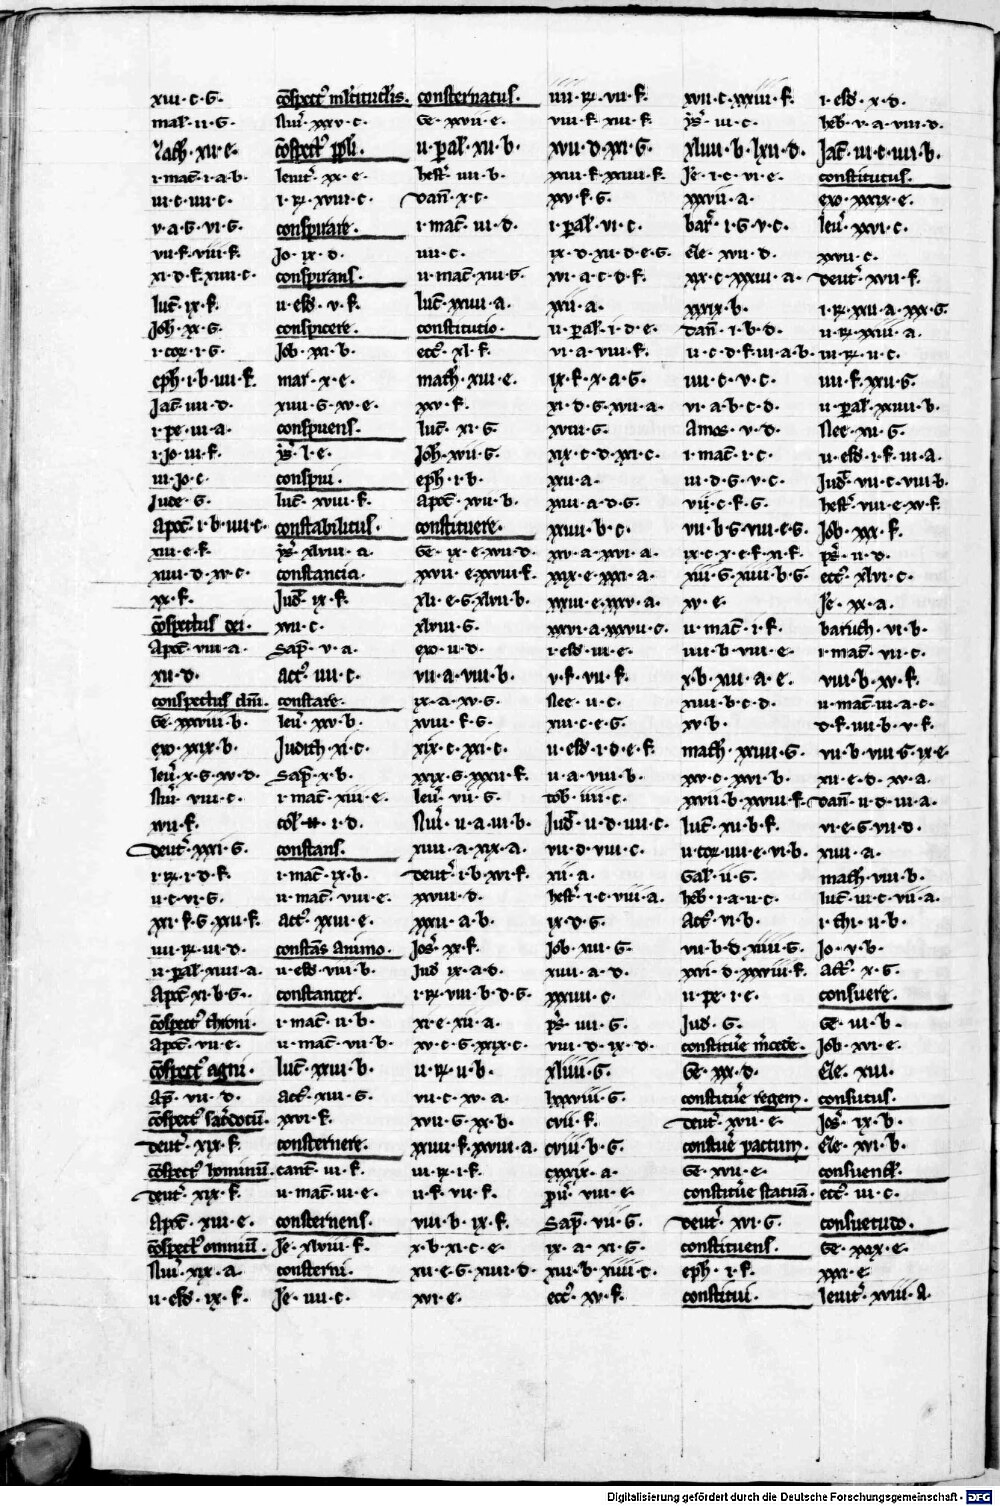 xiii·c·G·
mal·ii·G·
Zach·xii·e·
i·mac̄·i·a·b·
iii·c·iiii·c·
v·a·G·vi·G·
vii·f·viii·f·
xi·d·f·xiiii·c·
luc̄·ix·f·
Joh·xx·G·
i·cor·i·G·
eph·i·b·iiii·f·
Jac̄·iiii·d·
i·pe·iii·a·
i·Jo·iii·f·
iii·Jo·c·
Jude·G·
Apoc̄·i·b·iiii·c·
xiii·e·f·
xiiii·d·xv·c·
xx·f·
cōspectus dei·
Apoc̄·viii·a·
xii·d·
conspectus dn̄i·
Gē·xxviii·b·
exo·xxix·b·
leu̅·x·G·xv·d·
Nu̅·viii·c·
xvii·f·
deut̄·xxxi·G·
i·rꝝ·i·d·f·
ii·c·vi·G·
xxi·f·G·xxii·f·
iiii·rꝝ·iii·d·
ii·ꝑal·xiiii·a·
Apoc̄·xi·b·G·
cōspect⁹ throni·
Apoc̄·vii·e·
cōspect⁹ agni·
Ap̄·vii·d·
cōspect⁹ sac̄dotū·
deut̄·xix·f·
cōspect⁹ hominū·
deut̄·xix·f·
Apoc̄·xiii·e·
cōspect⁹ omniū·
Nu̅·xix·a·
ii·esd·ix·f·
Nu̅·xxv·c·
cōspect⁹ ppl̄i·
leuit̄·xx·e·
i·rꝝ·xviii·c·
conspirare·
Jo·ix·d·
conspirans·
ii·esd·v·f·
conspicere·
Job·xxi·b·
mar̄·x·e·
xiiii·G·xv·e·
conspuens·
ys̄·l·e·
conspui·
luc̄·xviii·f·
constabilitus·
ys̄·xlviii·a·
constancia·
Jud̄·ix·f·
xvii·c·
Sap̄·v·a·
act⁹·iiii·c·
constare·
leu̅·xxv·b·
Judith·xi·c·
Sap̄·x·b·
i·mac̄·xiii·e·
col·i·d·
constans·
i·mac̄·ix·b·
ii·mac̄·viii·e·
act⁹·xxiii·e·
constās animo·
ii·esd·viii·b·
constanter·
i·mac̄·ii·b·
ii·mac̄·vii·b·
luc̄·xxiii·b·
act⁹·xiii·G·
xxvi·f·
consternere·
cant̄·iii·f·
ii·mac̄·iii·e·
consternens·
Je·xlviii·f·
consterni·
Je·iiii·c·
consternatus·
Ge·xxvii·e·
ii·ꝑal·xii·b·
hest̄·iiii·b·
dan̄·x·c·
i·mac̄·iii·d·
iiii·c·
ii·mac̄·xiii·G·
luc̄·xxiiii·a·
constitutio·
ecc̄·xl·f·
math·xiii·e·
xxv·f·
luc̄·xi·G·
Joh·xvii·G·
eph·i·b·
Apoc̄·xvii·b·
constituere·
Gē·ix·e·xvii·d·
xxvii·e·xxviii·f·
xli·e·G·xlvii·b·
xlviii·G·
exo·ii·d·
vii·a·viii·b·
ix·a·xv·G·
xviii·f·G·
xix·c·xxi·c·
xxix·G·xxxii·f·
leu̅·vii·G·
Nu̅·ii·a·iii·b·
xiiii·a·xix·a·
deut̄·i·b·xvi·f·
xxviii·d·
xxxii·a·b·
Jos̄·xx·f·
Jud·ix·a·d·
i·rꝝ·viii·b·d·G·
xi·e·xii·a·
xv·c·G·xxix·c·
ii·rꝝ·ii·b·
vii·c·xv·a·
xvii·G·xx·b·
xxiii·f·xxviii·a·
iii·rꝝ·i·f·
ii·f·vii·f·
viii·b·ix·f·
x·b·xi·c·e·
xii·e·G·xiiii·d·
xvi·e·
iiii·rꝝ·vii·f·
viii·f·xiii·f·
xvii·d·xxi·G·
xxiii·f·xxiiii·f·
xxv·f·G·
i·ꝑal·vi·c·
ix·d·xii·d·e·G·
xvi·a·c·d·f·
xxii·a·
ii·ꝑal·i·d·e·
vi·a·viii·f·
ix·f·x·a·G·
xi·d·G·xvii·a·
xviii·G·
xix·c·d·xxi·c·
xxii·a·
xxiii·a·d·G·
xxiiii·b·c·
xxv·a·xxvi·a·
xxix·e·xxxi·a·
xxxiii·e·xxxv·a·
xxxvi·a·xxxvii·c·
i·esd·iii·e·
v·f·vii·f·
Nee·ii·c·
xiii·c·e·G·
ii·esd·i·d·e·f·
ii·a·viii·b·
tob·iiii·c·
Jud̄·ii·d·iiii·c·
vii·d·viii·c·
xii·a·
hest̄·i·c·viii·a·
ix·d·G·
Job·xiii·G·
xiiii·a·d·
xxxiiii·c·
ps̄·iiii·G·
viii·d·ix·d·
xliiii·G·
lxxxviii·G·
cvii·f·
cviii·b·G·
cxxxix·a·
pu̅·viii·e·
Sap̄·vii·G·
ix·a·xi·G·
xiii·b·xiiii·c·
ecc̄·xv·f·
xvii·c·xxiii·f·
ys̄·iii·c·
xliiii·b·lxii·d·
Je·i·c·vi·e·
xxxvii·a·
bar̄·i·G·v·c·
Eze·xvii·d·
xx·c·xxxiii·a·
xxxix·b·
dan̄·i·b·d·
ii·c·d·f·iii·a·b·
iiii·c·v·c·
vi·a·b·c·d·
Amos·v·d·
i·mac̄·i·c·
iii·d·G·v·c·
vii·c·f·G·
vii·b·G·viii·e·G·
ix·c·x·e·f·xi·f·
xiii·G·xiiii·b·G·
xv·e·
ii·mac̄·i·f·
iiii·b·viii·e·
x·b·xiii·a·e·
xiiii·b·c·d·
xv·b·
math·xxiiii·G·
xxv·c·xxvi·b·
xxvii·b·xxviii·f·
luc̄·xii·b·f·
ii·cor·iiii·e·vi·b·
Gal·ii·G·
heb̄·i·a·ii·c·
Act⁹·vi·b·
vii·b·d·xiiii·G·
xxvi·d·xxviii·f·
ii·pe·i·c·
Jud·G·
constitu̅e m̄cede·
Ge·xxx·d·
constitu̅e regem·
deut̄·xvii·e·
constitu̅e pactum·
Ge·xvii·e·
constitu̅e statuā·
deut̄·xvi·G·
constituens·
eph·i·f·
constitui·
i·esd·x·d·
heb̄·v·a·viii·d·
Jac̄·iii·c·iiii·b·
constitutus·
exo·xxxix·e·
leu̅·xxvi·c·
xxvii·c·
deut̄·xvii·f·
i·rꝝ·xxii·a·xxx·G·
ii·rꝝ·xxiii·a·
iii·rꝝ·ii·c·
iiii·f·xxii·G·
ii·ꝑal·xxiii·b·
Nee·xii·G·
ii·esd·i·f·iii·a·
Jud̄·vii·c·viii·b·
hest̄·viii·e·xv·f·
Job·xxx·f·
ps̄·ii·d·
ecc̄·xlvi·c·
Je·xx·a·
baruch·vi·b·
i·mac̄·vii·c·
viii·b·xv·f·
ii·mac̄·iii·a·c·
d·f·iiii·b·v·f·
vii·b·viii·G·ix·e·
xii·e·d·xv·a·
dan̄·ii·d·iii·a·
vi·e·G·vii·d·
xiiii·a·
math·viii·b·
luc̄·iii·c·vii·a·
i·thi·ii·b·
Jo·v·b·
Act⁹·x·G·
consuere·
Ge·iii·b·
Job·xvi·e·
Eze·xiii·
consutus·
Jos̄·ix·b·
Eze·xvi·b·
ecc̄·iii·c·
consuetudo·
Ge·xxix·e·
xxxi·e·
leuit̄·xviii·a·
Digitalisierung gefördert durch die Deutsche Forschungsgemeinschaft - DFG